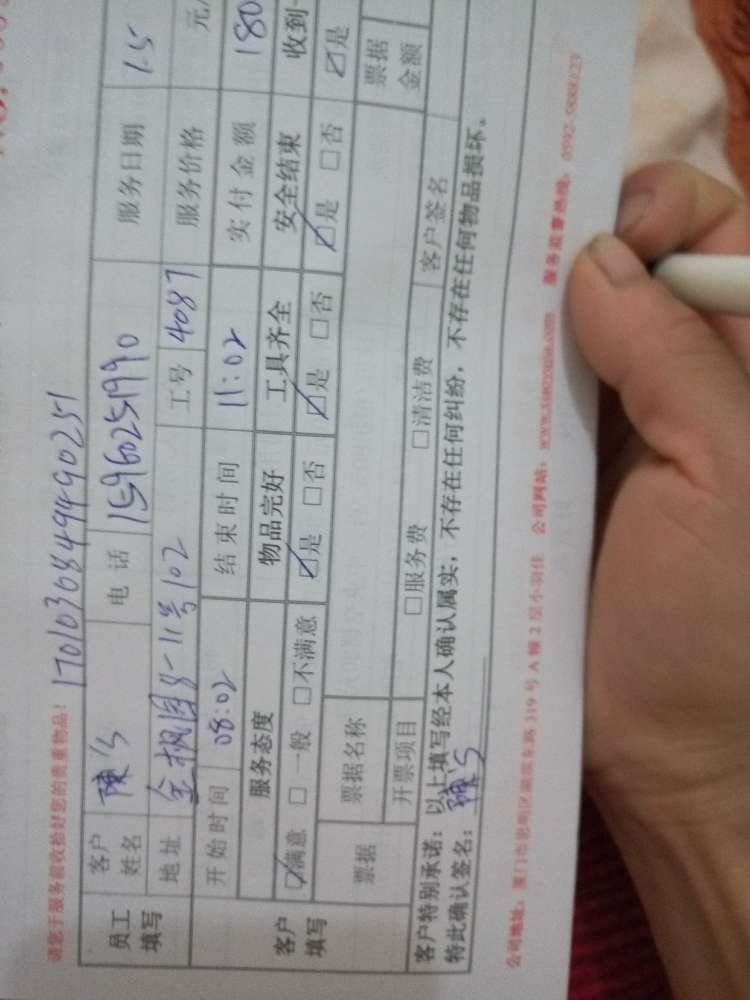 请您于服务前收拾好您的贵重物品! 17010308494940251
员工填写 客户姓名 陳 电话 15960251990 服务日期 1.5
地址 金枫园8-11号102 工号 4087 服务价格 元/
开始时间 08:02 结束时间 11:02 实付金额 180
客户填写 服务态度 物品完好 工具齐全 安全结束 收到
☑满意 □一般 □不满意 ☑是 □否 ☑是 □否 ☑是 □否 ☑是
票据 票据名称 票据金额
开票项目 □服务费 □清洁费 客户签名
客户特别承诺: 以上填写经本人确认属实, 不存在任何纠纷, 不存在任何物品损坏。
特此确认签名: 陳
公司地址: 厦门市思明区湖滨东路319号A幢2层小羽佳 公司网站: www.xiaoyujia.com 服务监督热线: